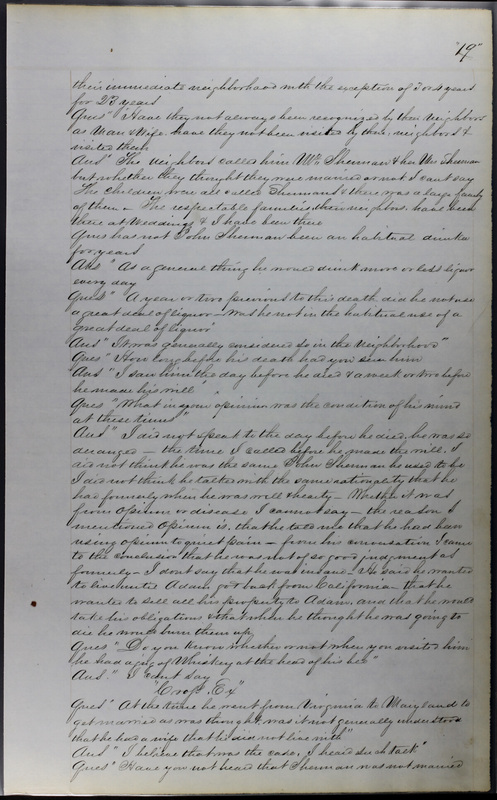 "19"
their immediate neighborhood with the exception of 3 or 4 years
for 23 years
Ques" Have they not always been recognized by their Neighbors
as Man & Wife. have they not been visited by their neighbors &
visited them
Ans" The neighbors called him Mr Sherman & her Mrs Sherman
but whether they thought they were married or not I cant say
The children were all called Shermans & there was a large family
of them – The respectable families, their neighbors, have been
there at Weddings & I have been there
Ques has not John Sherman been an habitual drinker
for years
Ans" As a general thing he would drink more or less liquor
every day
Ques" A year or two previous to his death did he not use
a great deal of liquor – was he not in the habitual use of a
great deal of liquor"
Ans" It was generally considered so in the Neighborhood"
Ques" How long before his death had you seen him
Ans" I saw him the day before he died & a week or two before
he made his will"
Ques "What in your opinion was the condition of his mind
at these times"
Ans" I did not speak to the day before he died, he was so
deranged – the time I called before he made the will. I
did not think he was the same John Sherman he used to be
I did not think he talked with the same rationality that he
had formerly when he was well & hearty – Whether it was
from Opium or disease I cannot say – the reason I
mentioned Opium is, that he told me that he had been
using opium to quiet pain – from his conversation I came
to the conclusion that he was not of so good judgment as
formerly – I dont say that he was insane – He said he wanted
to live until Adam got back from California that he
wanted to sell all his property to Adam, and that he would
take his obligations & that when he thought he was going to
die he would burn them up
Ques" Do you know whether or not when you visited him
he had a jug of Whiskey at the head of his bed"
Ans." I cant say
"Cross. Ex"
Ques" At the time he went from Virginia to Maryland to
get married as was thought, was it not generally understood
that he had a wife that he did not live with"
Ans" I believe that was the case, I heard such talk"
Ques" Have you not heard that Sherman was not married